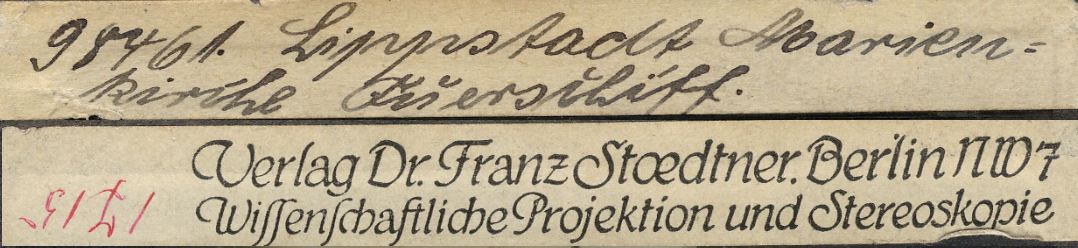 98461. Lippstadt Marien-
kirche Querschiff.
Verlag Dr. Franz Stoedtner. Berlin NW7
Wissenschaftliche Projektion und Stereoskopie